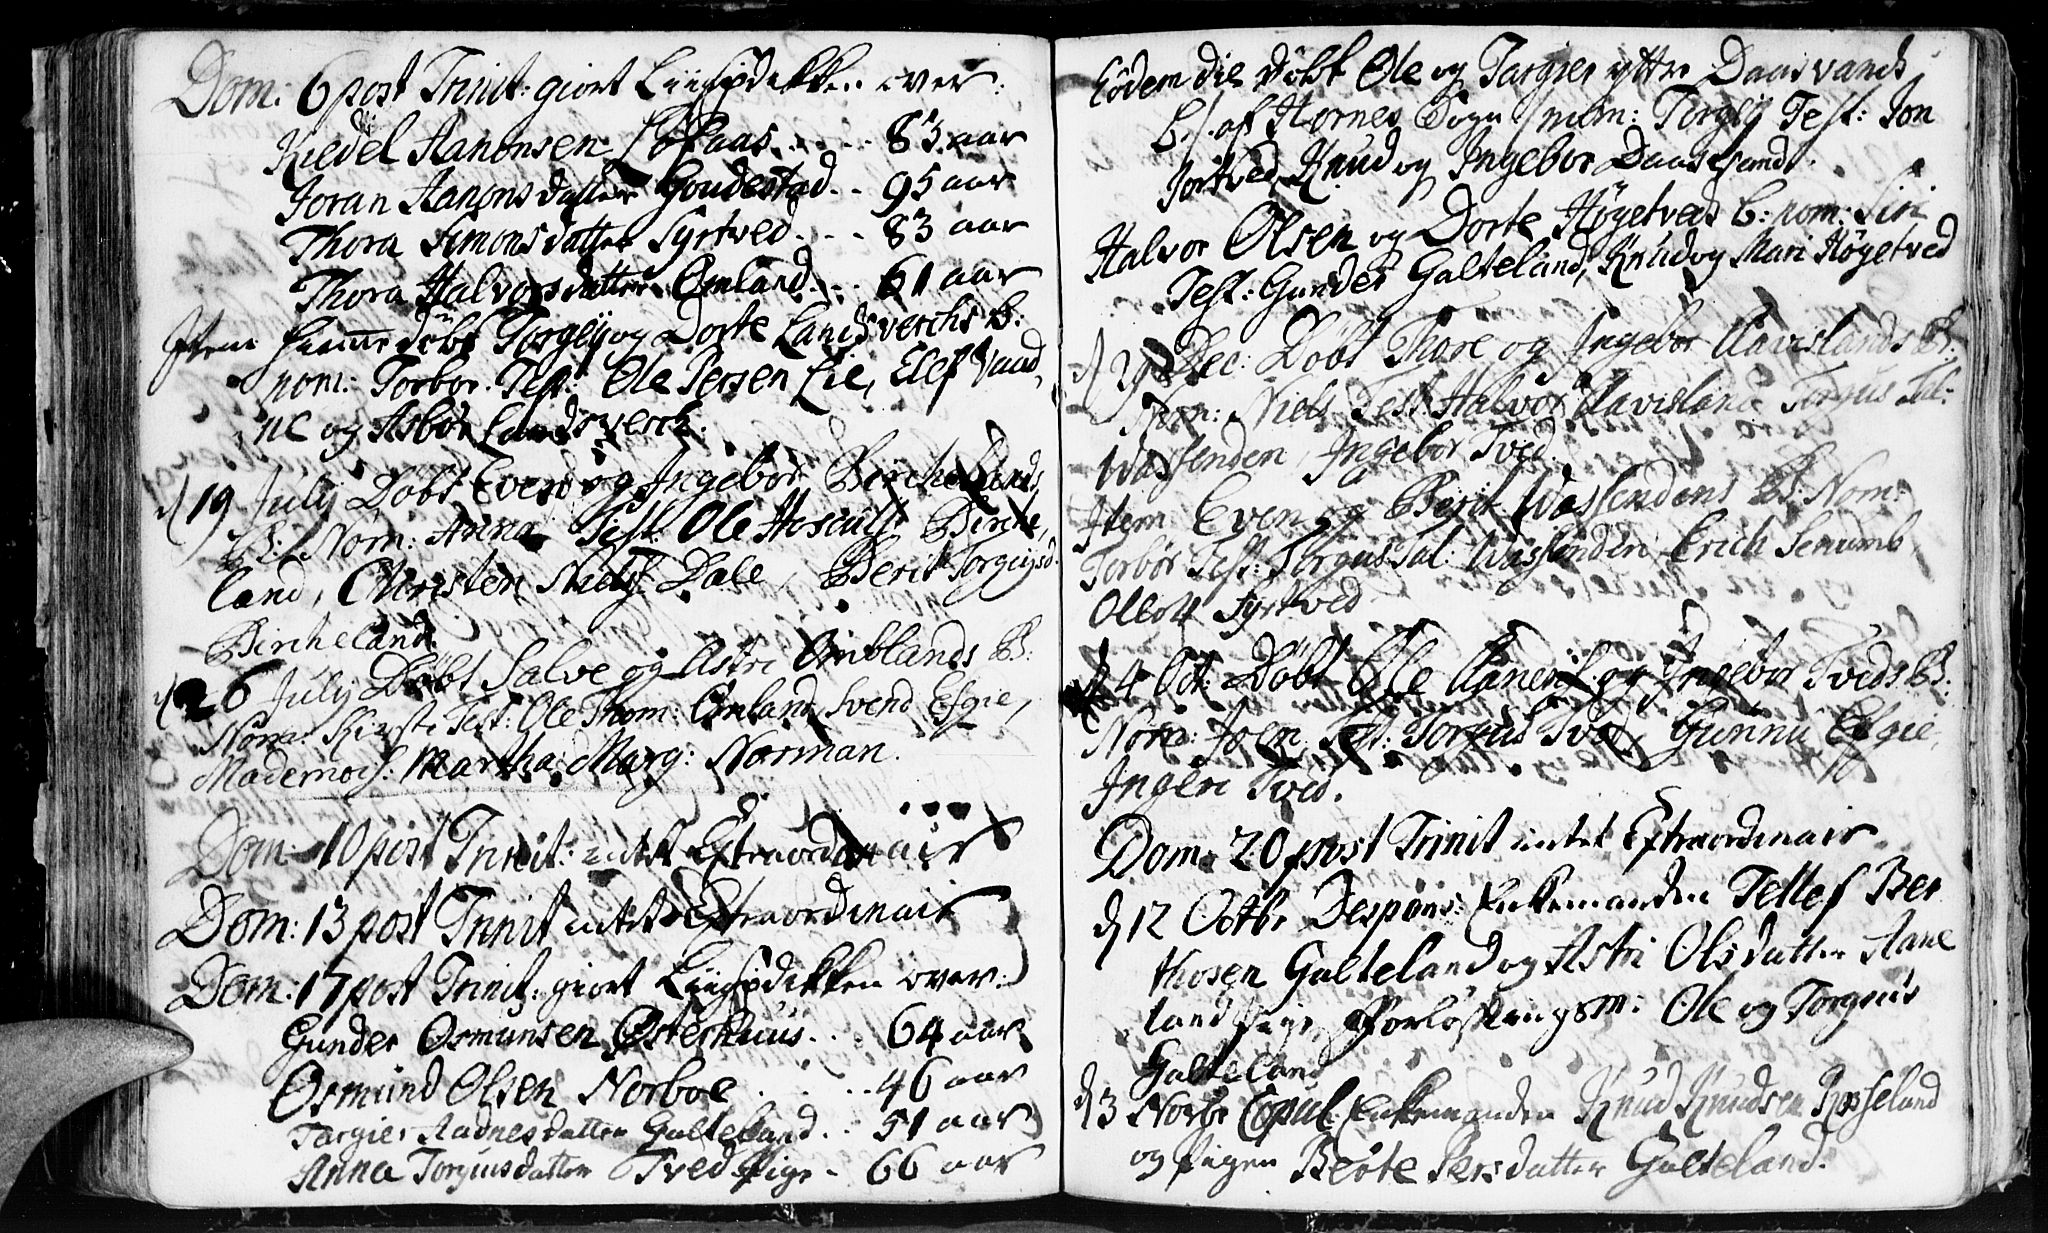 Dom: 6 post Trinit: giort Liigprædikken over:
Kiedel Aanonsen Røraas . . . . 83 aar
Joran Aanonsdatter Goudestad . . 95 aar
Thora Simonsdatter Syrtved . . . 83 aar
Thora Halvorsdatter Omland . . . 61 aar
Item samme døbt Torgeij og Dorte Landsverchs B:
nom: Torbor. Test: Ole Persen Lie, Elef
ne og Asbør Landsverch.
d 19 July Døbt Even og Ingebor Birchelands
B: Nom: Anna Test: Ole Birche,
land, Christen Niels: Dale, Berit Torgeijsd
Bircheland
d 26 July Døbt Salve og Astri Omblands B:
Nom: Kirsti Test: Ole Thom: Omland Svend Esgie,
Mademois: Martha Marg: Norman.
Dom: 10 post Trinit: intet Extraordinair
Dom: 13 post Trinit intet Extraordinair
Dom: 17 post Trinit: giort Liigprædikken over:
Gunder Osmunsen Østerhuus . . . 64 aar
Osmund Olsen Norboe . . . . 46 aar
Targier Aadnesdatter Galteland . . 51 aar
Anna Torgiusdatter Tved Pige - 66 aar
Eodem die døbt Ole og Targier ytre Daasvands
B. af Hornes Sogn nom: Torgeij Test: Jon
Jortved, Knud og Ingebor Daasvand.
Halvor Olsen og Dorte Høgetveds B: nom: Siri
Test: Gunder Galteland, Knud og Mari Høgetved
d Dec: Døbt Thore og Ingebor Aavislands B:
Nom: Niels Test: Halvor Aavisland Torgus Tal:
Wassenden, Ingebor Tved.
Item Even og Berit Wassendens B: Nom:
Torbør Test: Torgus Tal: Wassenden Erich Senumb
Olløv Syrtved
d 4 Oct: Døbt Ole Aanens: og Ingebor Tveds B:
Nom: Joen, Test: Torgus Tved, Gunnu Esgie,
Ingeri Tved.
Dom: 20 post Trinit intet Extraordinair
d 12 Octbr Despons: Enkemanden Tellef Ber
thosen Galteland og Astri Olsdatter Aane
land Pige, Forløftningsm: Ole og Torgius
Galteland
d 3 Novbr Copul: Enkemanden Knud Knudsen Rosseland
og Pigen Beøte Persdatter Galteland.